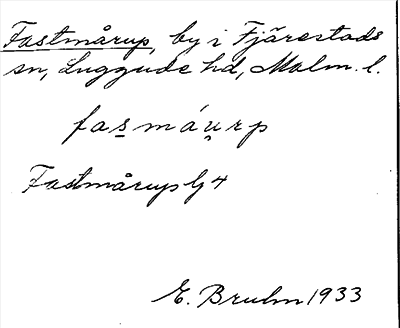 Fastmårup, by i Fjärestads
sn, Luggude hd, Malm. l.
fas̲máu̯rp
Fastmårup G4
E. Bruhn 1933